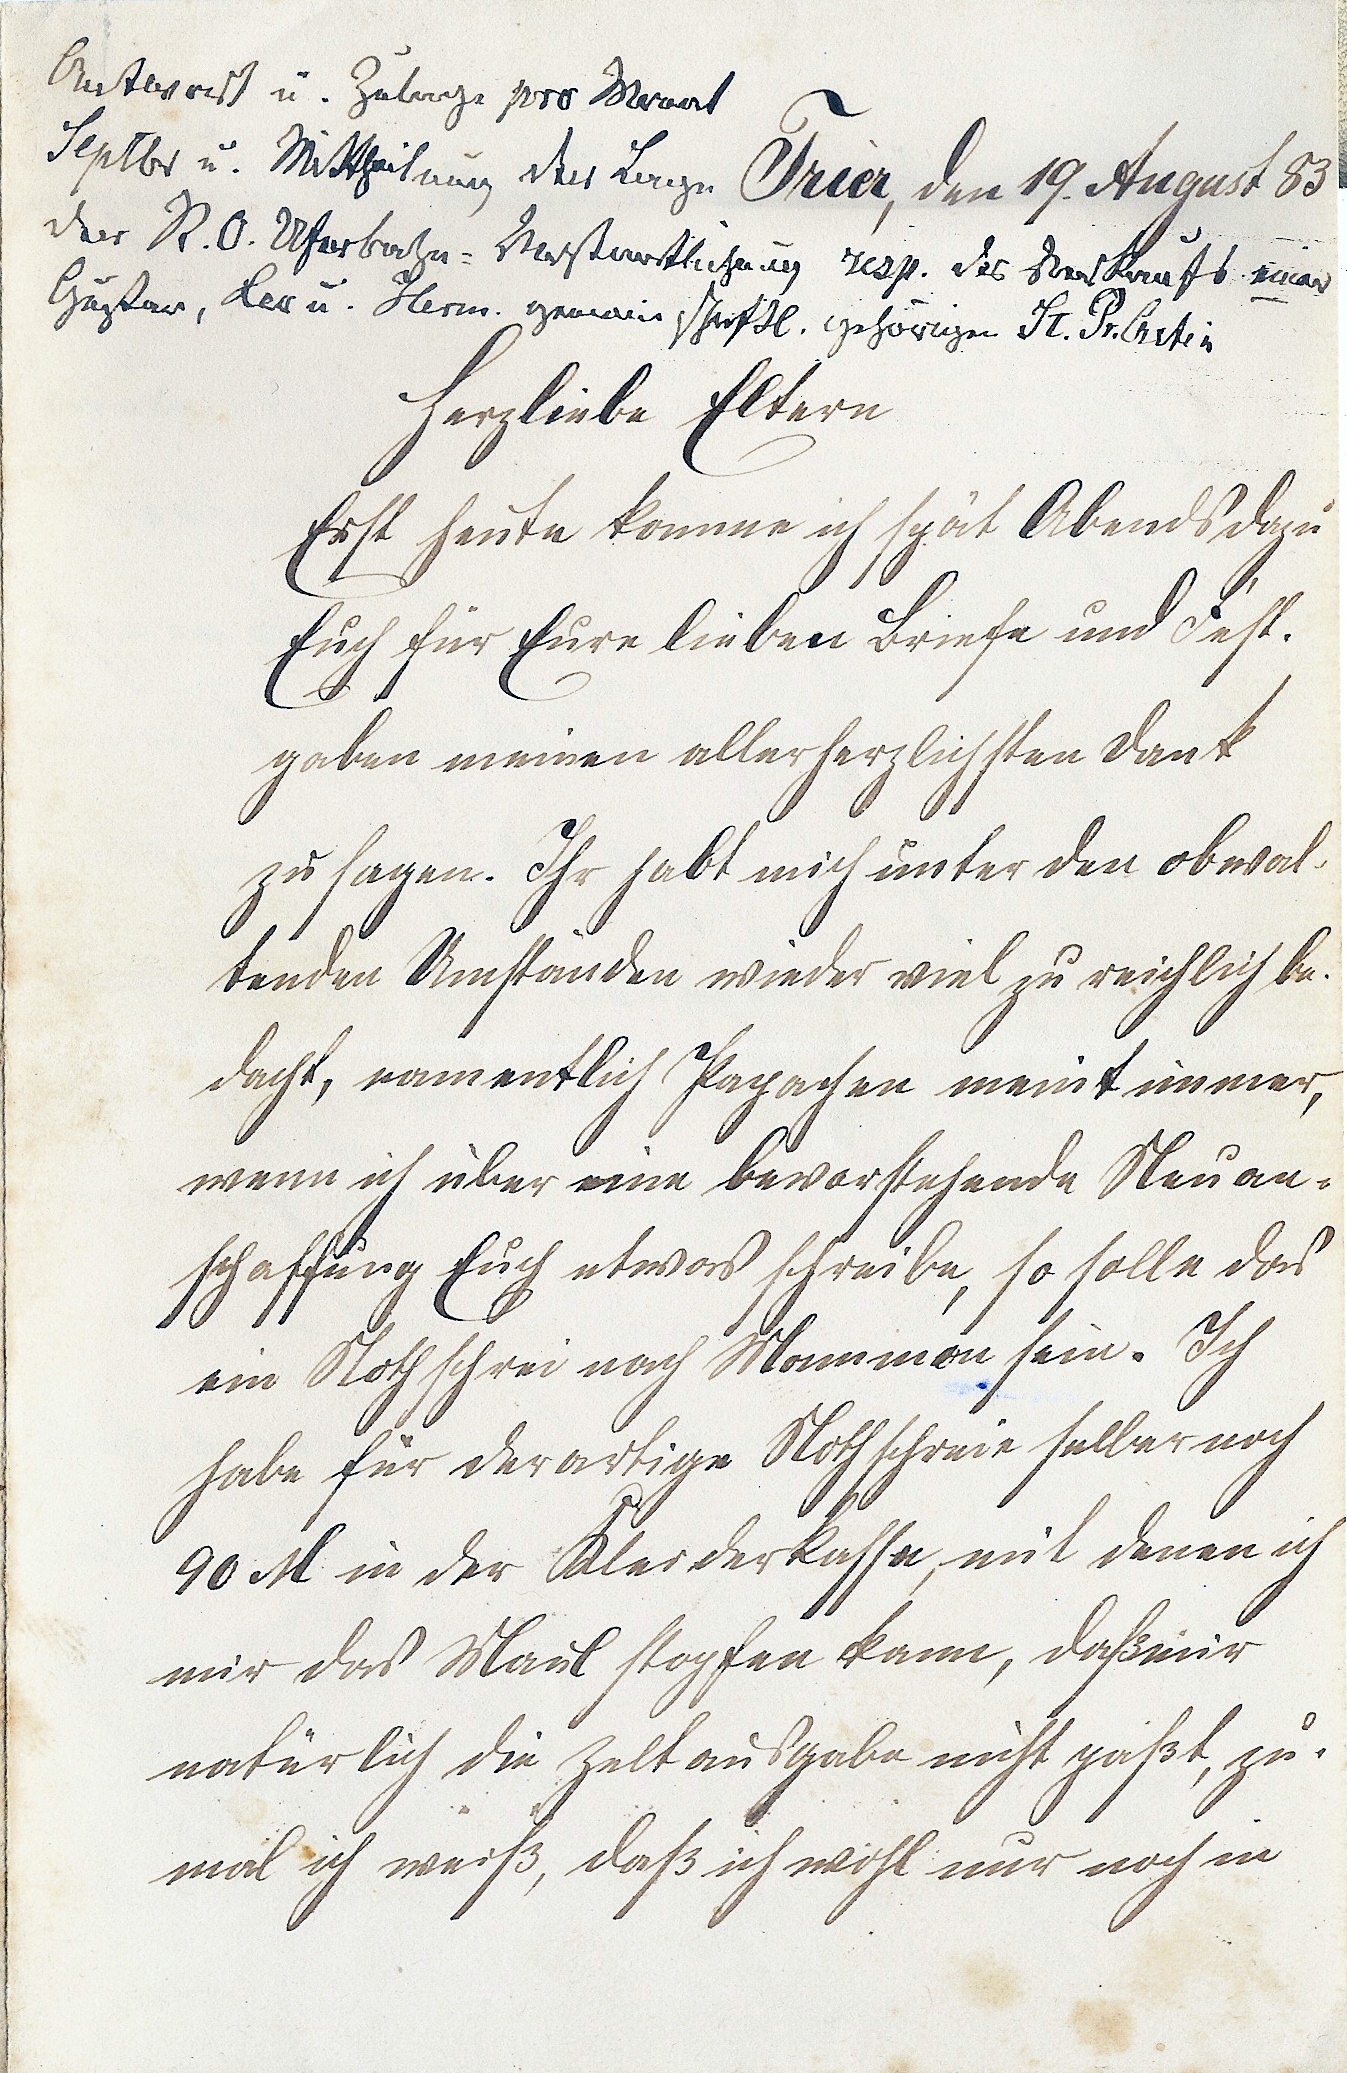 Antwort u. Zulage pro Monat
Septbr u. Mittheilung der Lage
Trier, den 19. August 83
der R. O. Uferbahn-Verstaatlichung resp. des Verkaufs einer
Gustav, Leo u. Herm. gemeinschaftl. gehörigen St. Pr. Actie
Herzliebe Eltern
Erst heute komme ich spät Abends dazu
Euch für Eure lieben Briefe und Fest-
gaben meinen allerherzlichsten Dank
zu sagen. Ihr habt mich unter den obwal-
tenden Umständen wieder viel zu reichlich be-
dacht, namentlich Papachen meint immer,
wenn ich über eine bevorstehende Neuan-
schaffung Euch etwas schreibe, so solle das
ein Nothschrei nach Mammon sein. Ich
habe für derartige Nothschreie selber noch
90 M in der Kleiderkasse, mit denen ich
mir das Maul stopfen kann, daß mir
natürlich die Zeltausgabe nicht paßt, zu-
mal ich weiß, daß ich wohl nur noch in